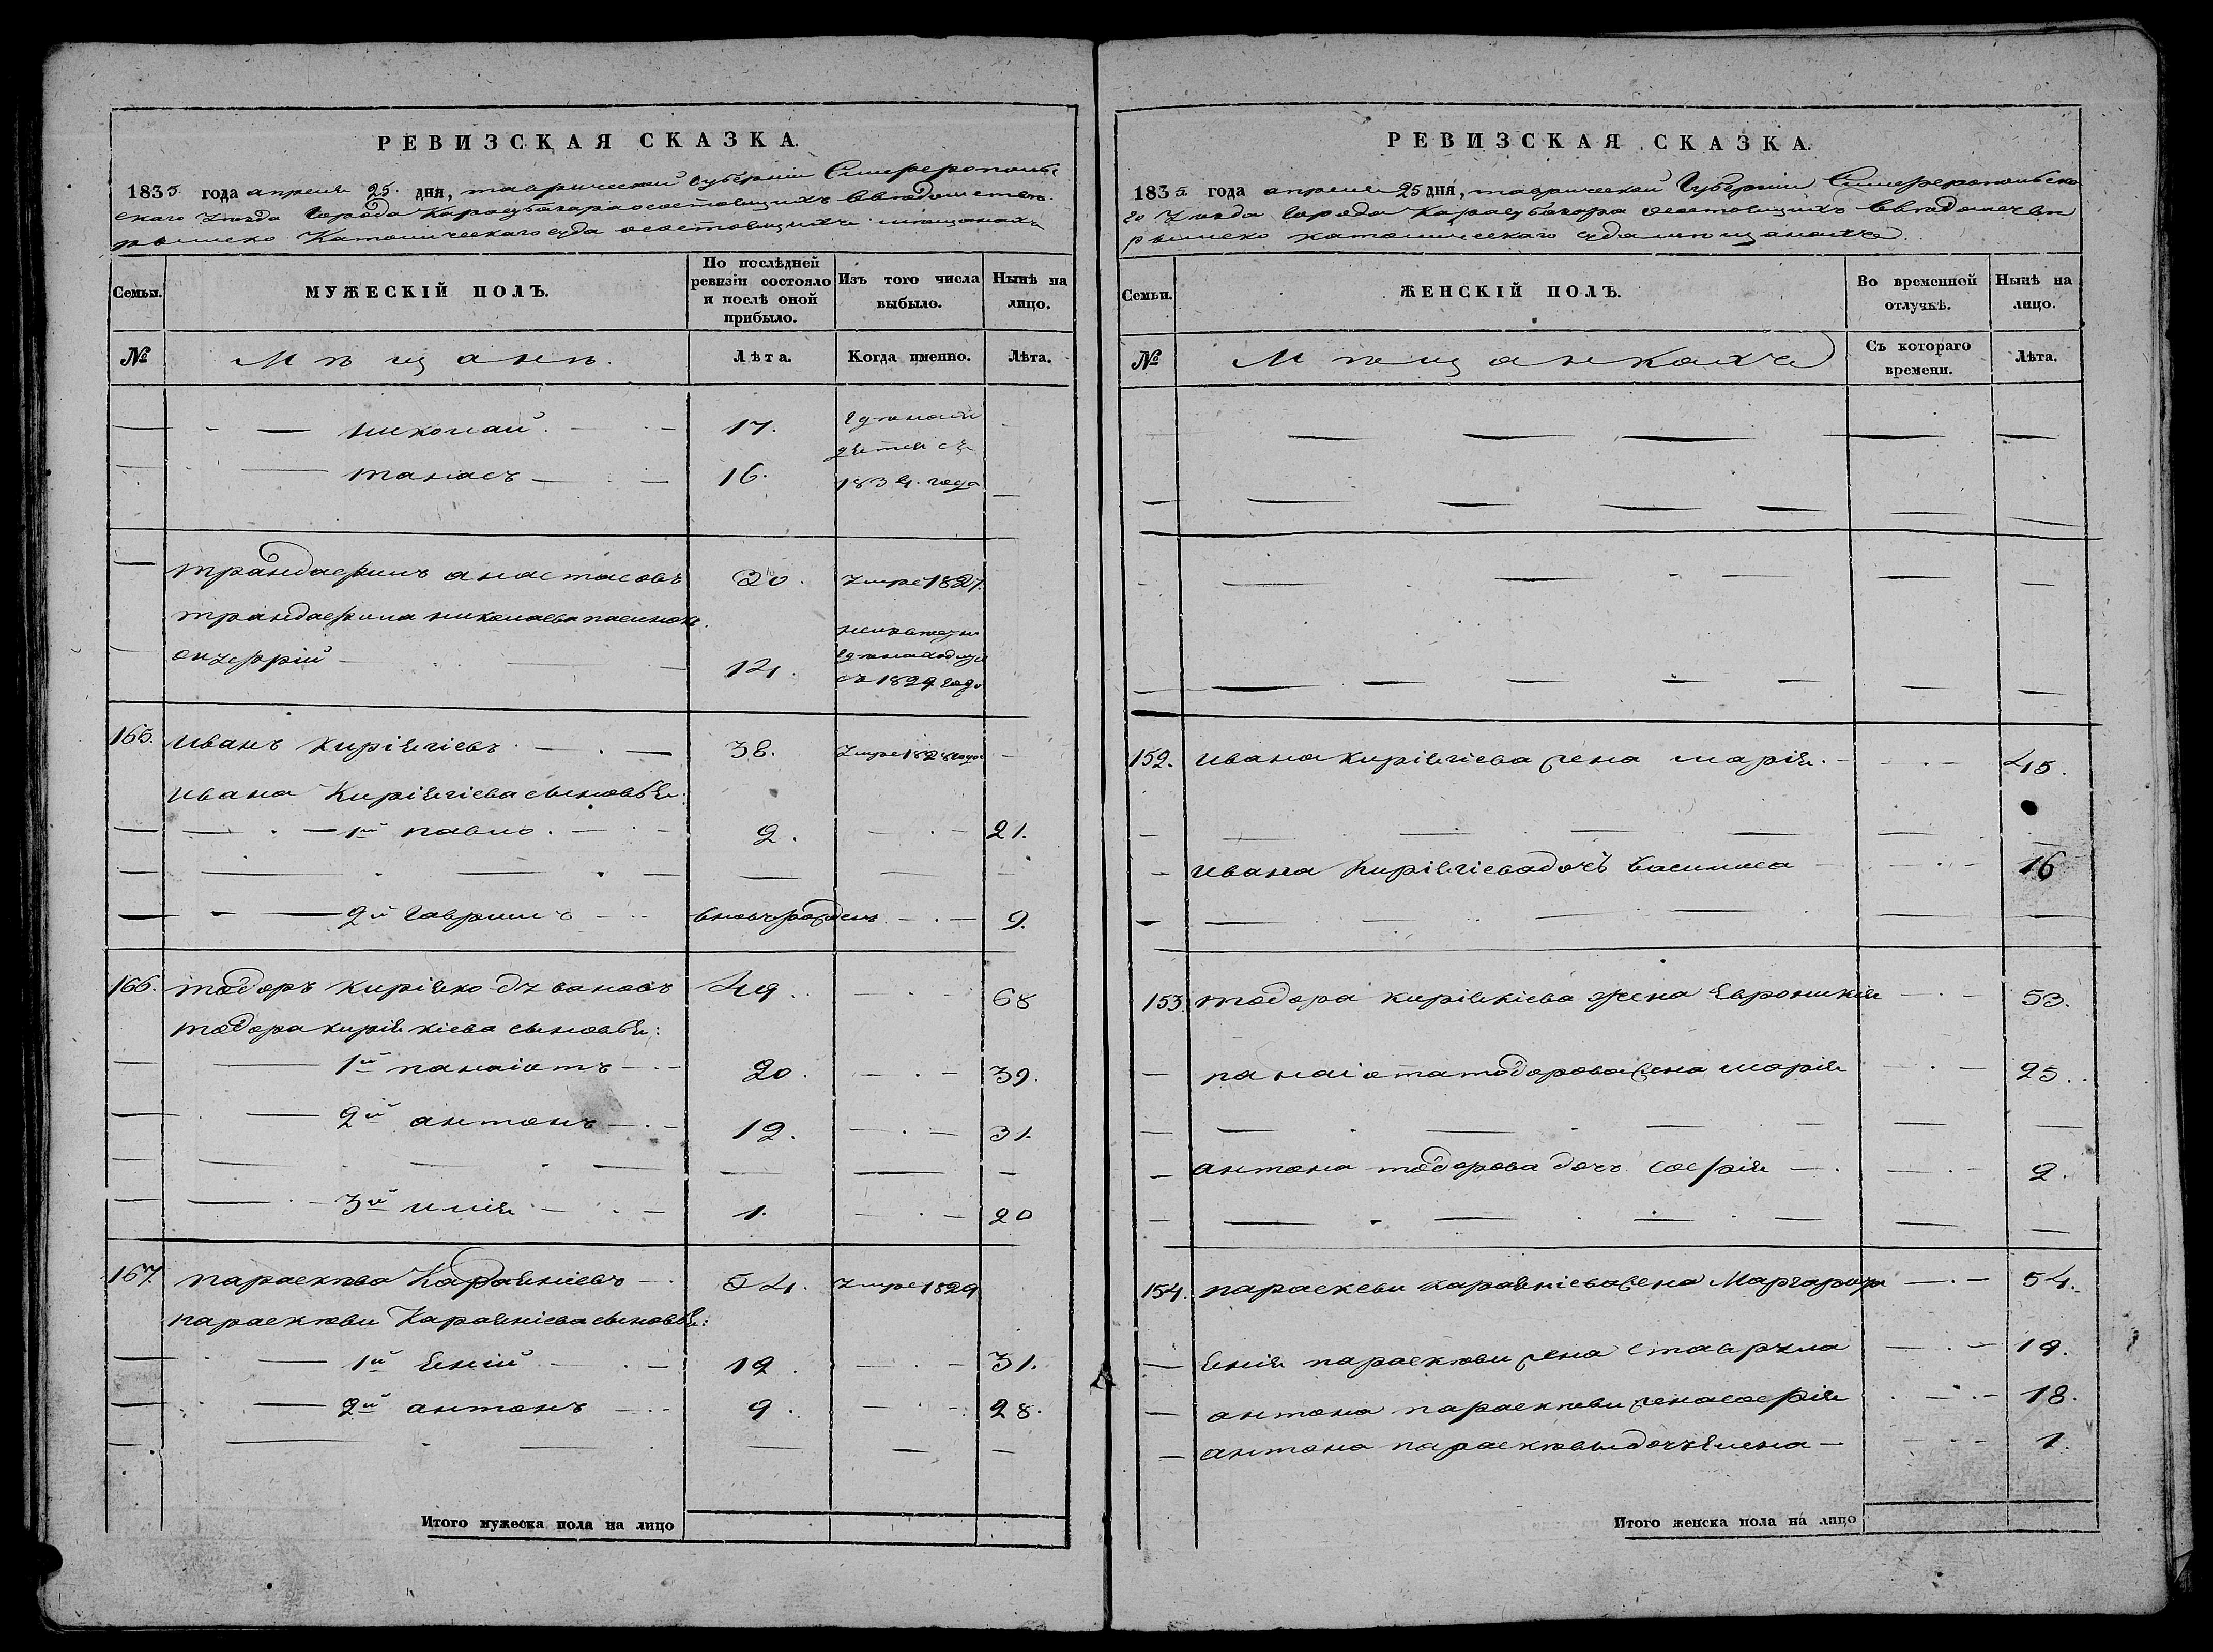 РЕВИЗСКАЯ СКАЗКА.
1835 года апреля 25 дня, таврической Губерніи Симферопольс
скаго уезда города Карасубазара состоящихъ введомстве
римско Католическаго суда мещанахъ
Семьи. МУЖЕСКІЙ ПОЛЪ. По послѣдней ревизіи состояло и послѣ оной прибыло. Изъ того числа выбыло. Нынѣ на лицо.
№ Мѣщане. Лѣта. Когда именно. Лѣта.
николай. 17.
танасъ 16. 1834. года
трандафилъ анастасовъ 30. умре 1827.
трандафила николаева пасинокъ
14. съ 1829 года
165. иванъ Киріячіевъ 38. умре 1828 года
ивана Киріячіева сыновья:
1й павло. 2. 21.
2й Гаврилъ вновь рожденъ 9.
166. тодоръ Киріяко 49. 68
тодора киріякіева сыновья:
1й панаіотъ 20. 39.
2й антонъ 12. 31.
3й илія 1. 20
167. параскева Караяніевъ 54. умре 1829
параскеви Караяніева сыновья:
1й яній 12. 31.
2й антонъ 9. 28.
Итого мужеска пола на лицо
РЕВИЗСКАЯ СКАЗКА.
1835 года апреля 25 дня, таврической Губерніи Симферопольска
го уезда города Карасубазара состоящихъ введомстве
римско католическаго суда мещанахъ
Семьи. ЖЕНСКІЙ ПОЛЪ. Во временной отлучкѣ. Нынѣ на лицо.
№ Мещанкахъ Съ котораго времени. Лѣта.
152. ивана киріячіева жена марія. 45.
ивана Киріячіева дочь василиса 16
153. тодора киріякіева жена Евроникія 53.
панаіота тодорова жена марія 25.
антона тодорова дочь софія 2.
154. параскеви караяніева жена Маргарита 54.
янія параскеви жена ставрула 19.
антона параскеви жена софія 18.
антона параскевы дочь елена 1.
Итого женска пола на лицо